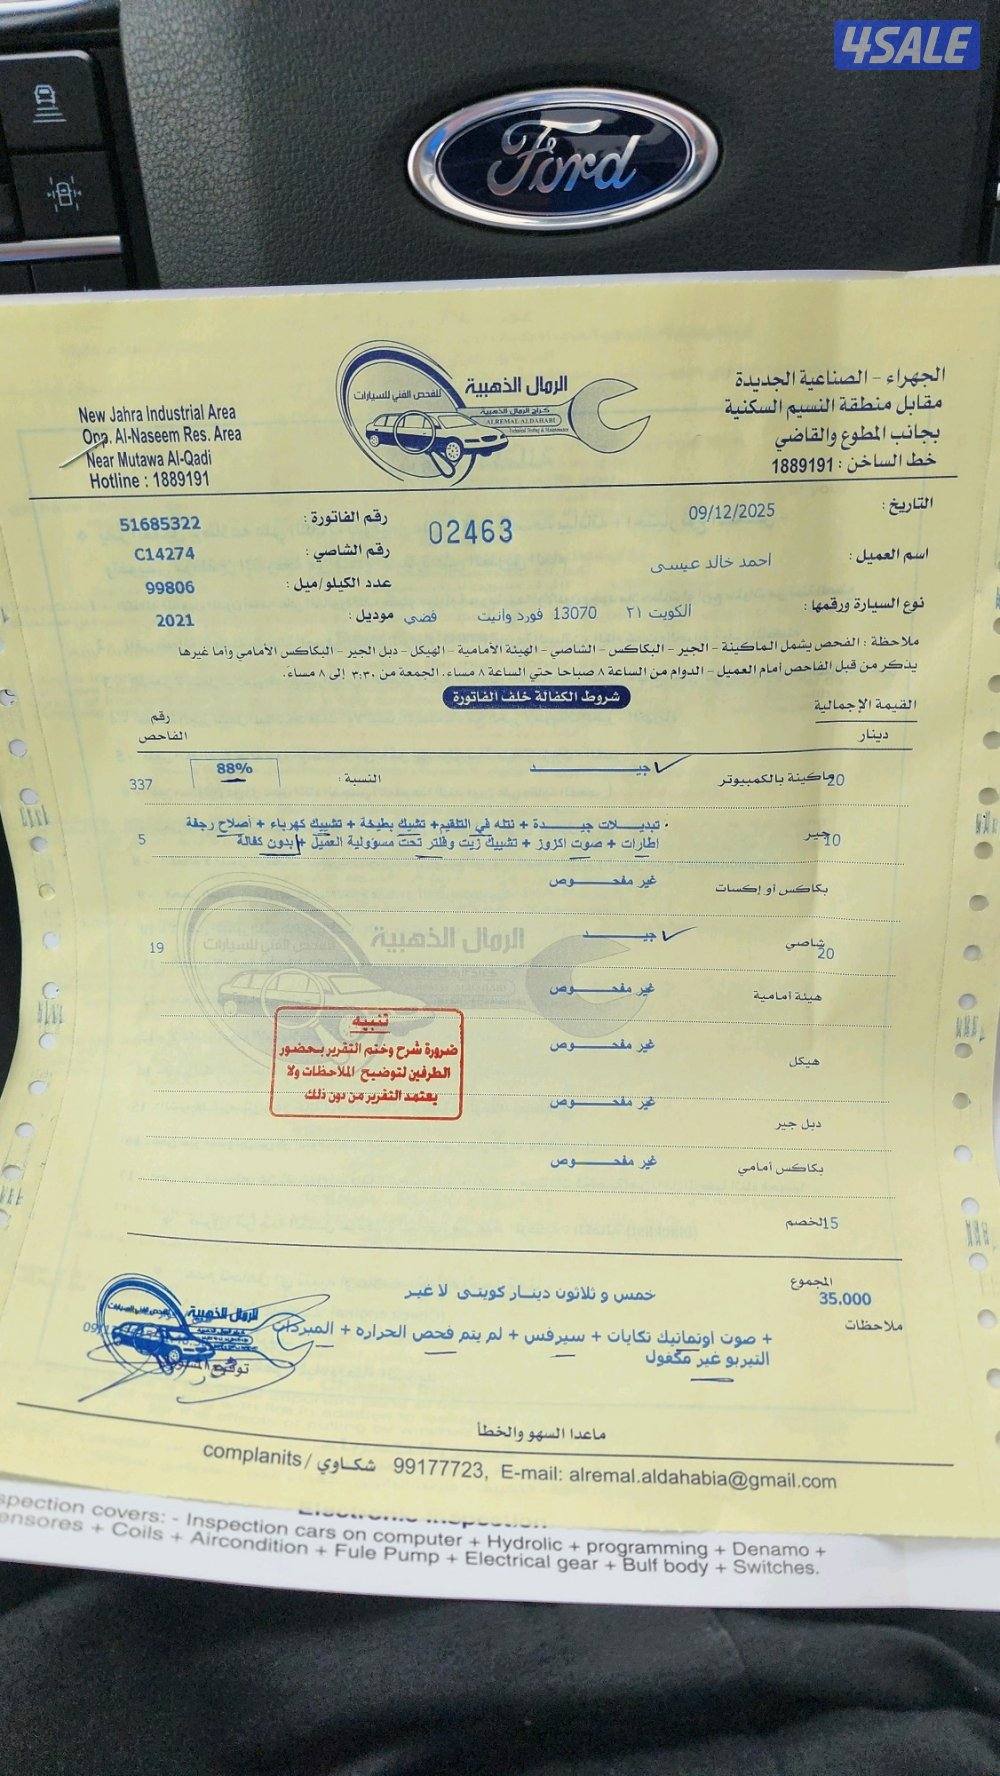 4SALE
Ford
الجهراء - الصناعية الجديدة
مقابل منطقة النسيم السكنية
بجانب المطوع والقاضي
خط الساخن : 1889191
الرمال الذهبية
للفحص الفني للسيارات
كراج الرمال الذهبية
ALREMAL ALDAHABI
Technical Testing & Maintenance
New Jahra Industrial Area
Opp. Al-Naseem Res. Area
Near Mutawa Al-Qadi
Hotline : 1889191
التاريخ : 09/12/2025
02463
رقم الفاتورة : 51685322
اسم العميل : احمد خالد عيسى
رقم الشاصي : C14274
عدد الكيلو/ميل : 99806
نوع السيارة ورقمها : الكويت ٢١ 13070 فورد وانيت فضي
موديل : 2021
ملاحظة : الفحص يشمل الماكينة - الجير - البكاكس - الشاصي - الهيئة الأمامية - الهيكل - دبل الجير - البكاكس الأمامي وأما غيرها
يذكر من قبل الفاحص أمام العميل - الدوام من الساعة ٨ صباحا حتي الساعة ٨ مساء. الجمعة من ٣:٣٠ إلى ٨ مساءً.
شروط الكفالة خلف الفاتورة
القيمة الإجمالية
دينار
رقم
الفاحص
ماكينة بالكمبيوتر 20 جيـــد النسبة : 88% 337
جير 10 تبديـلات جيـدة + نتله في التلقيم+ تشيك بطيخة + تشييك كهرباء + أصلاح رجفة
اطارات + صوت اكزوز + تشييك زيت وفلتر تحت مسؤولية العميل + بدون كفالة 5
بكاكس أو إكسات غير مفحـــوص
شاصي 20 جيـــد 19
هيئة أمامية غير مفحـــوص
هيكل غير مفحـــوص
دبل جير غير مفحـــوص
بكاكس أمامي غير مفحـــوص
تنبيه
ضرورة شرح وختم التقرير بحضور
الطرفين لتوضيح الملاحظات ولا
يعتمد التقرير من دون ذلك
الخصم 15
المجموع
35.000 خمس و ثلاثون دينـار كويتى لا غير
ملاحظات + صوت اوتماتيك تكايات + سيرفس + لم يتم فحص الحراره + المبردات
التيربو غير مكفول
الرمال الذهبية
توقيع
ماعدا السهو والخطأ
complanits / شكـاوي 99177723, E-mail: alremal.aldahabia@gmail.com
spection covers: - Inspection cars on computer + Hydrolic + programming + Denamo +
ensores + Coils + Aircondition + Fule Pump + Electrical gear + Bulf body + Switches.